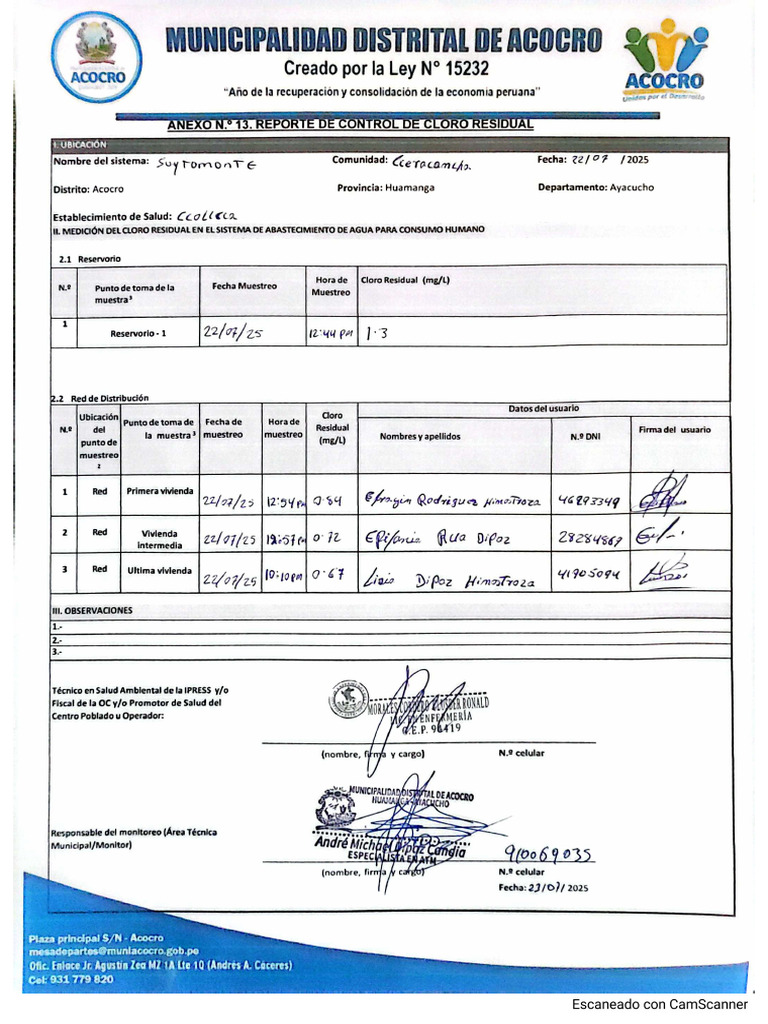 MUNICIPALIDAD DISTRITAL DE ACOCRO
Creado por la Ley N° 15232
"Año de la recuperación y consolidación de la economía peruana"
ACOCRO
ACOCRO
Unidos por el Desarrollo
ANEXO N.º 13. REPORTE DE CONTROL DE CLORO RESIDUAL
I. UBICACIÓN
Nombre del sistema: Suytomonte Comunidad: Cceracancha. Fecha: 22/07 /2025
Distrito: Acocro Provincia: Huamanga Departamento: Ayacucho
Establecimiento de Salud: Ccollcca
II. MEDICIÓN DEL CLORO RESIDUAL EN EL SISTEMA DE ABASTECIMIENTO DE AGUA PARA CONSUMO HUMANO
2.1 Reservorio
N.º Punto de toma de la muestra³ Fecha Muestreo Hora de Muestreo Cloro Residual (mg/L)
1 Reservorio - 1 22/07/25 12:44 PM 1.3
2.2 Red de Distribución
Datos del usuario
N.º Ubicación del punto de muestreo ² Punto de toma de la muestra ³ Fecha de muestreo Hora de muestreo Cloro Residual (mg/L) Nombres y apellidos N.º DNI Firma del usuario
1 Red Primera vivienda 22/07/25 12:54 PM 0.84 Rodriguez Himostroza 46293349
2 Red Vivienda intermedia 22/07/25 12:57 PM 0.72 Epifania Rua Dipaz 28284867
3 Red Ultima vivienda 22/07/25 10:10 PM 0.67 Dipaz Himostroza 41905094
III. OBSERVACIONES
1.-
2.-
3.-
Técnico en Salud Ambiental de la IPRESS y/o
Fiscal de la OC y/o Promotor de Salud del
Centro Poblado u Operador:
MORALES RONALD
LIC. EN ENFERMERÍA
C.E.P. 98419
(nombre, firma y cargo) N.º celular
MUNICIPALIDAD DISTRITAL DE ACOCRO
HUAMANGA - AYACUCHO
Responsable del monitoreo (Área Técnica
Municipal/Monitor)
André Michael Dipaz Candia
ESPECIALISTA EN ATM
910069035
(nombre, firma y cargo) N.º celular
Fecha: 23/07/ 2025
Plaza principal S/N - Acocro
mesadepartes@muniacocro.gob.pe
Ofic. Enlace Jr. Agustín Zea MZ 1A Lte 10 (Andrés A. Cáceres)
Cel: 931 779 820
Escaneado con CamScanner